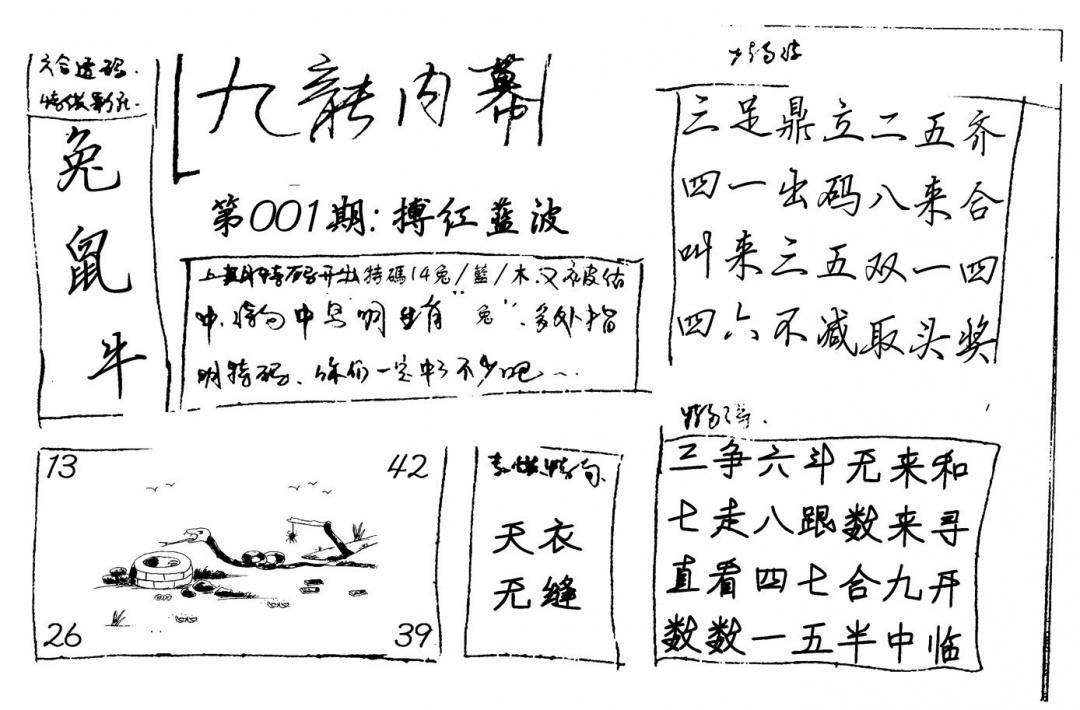 六合透码.
兔
鼠
牛
九龍内幕
第001期:搏红蓝波
上期特码开出特碼14兔/藍/木.又被估
中.特句中写明生肖"兔".多处指
明特码、你们一定中了不少吧…
三足鼎立二五齐
四一出码八来合
叫来三五双一四
四六不减取头奖
13
42
26
39
天衣
无缝
三争六斗无来和
七走八跟数来寻
直看四七合九开
数数一五半中临